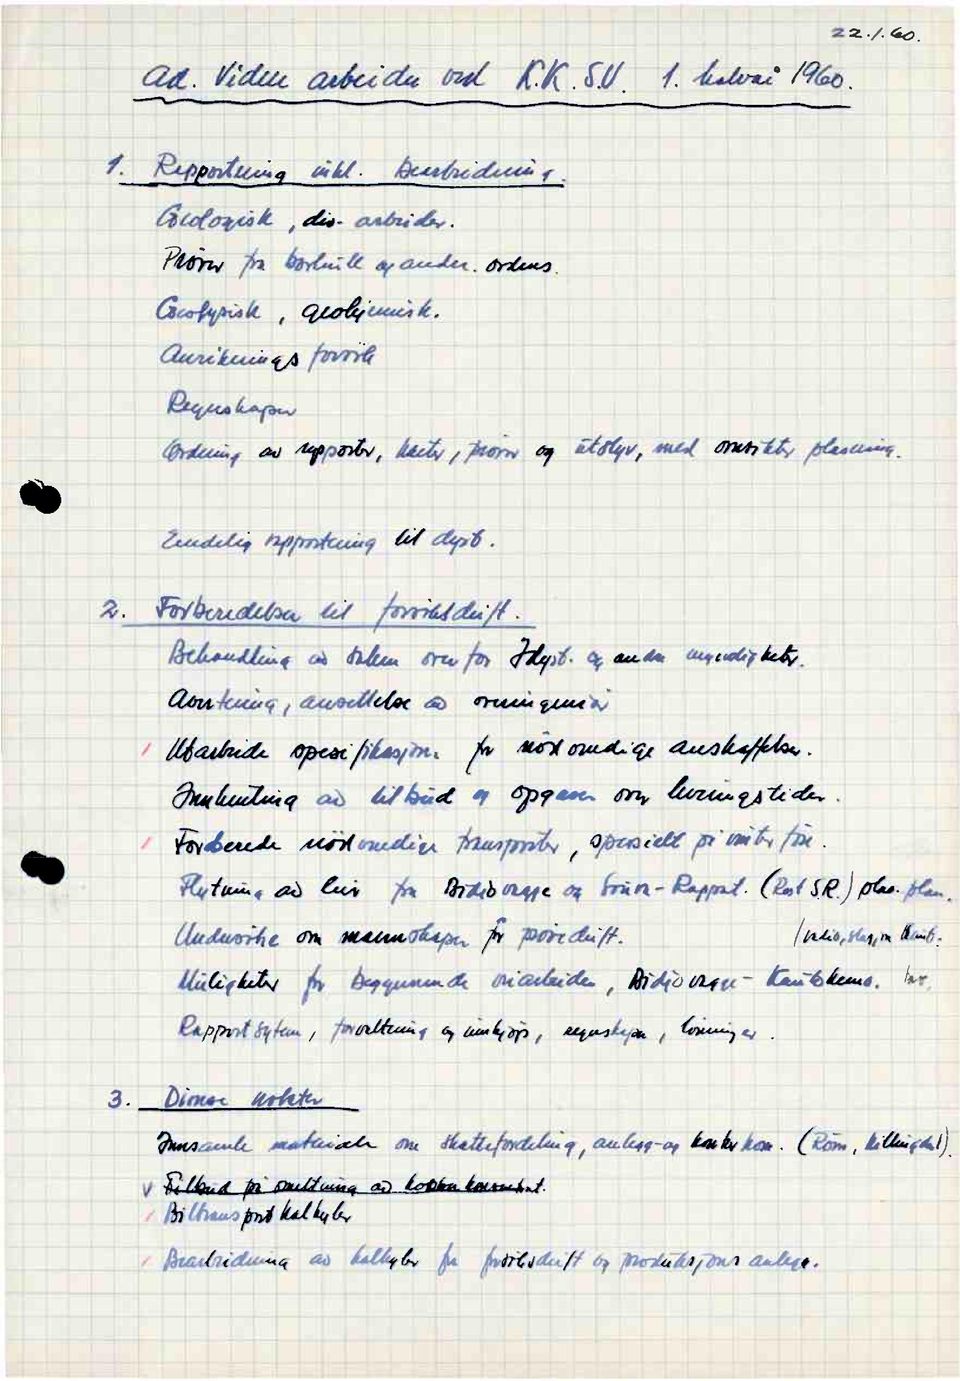 22.1.60.
ad. Videre arbeider ved K.K.S.V. 1. halvår 1960.
1. Rapportering inkl. bearbeidning.
Geologisk, div. arbeider.
Prøver fra borhull og anden. ordens.
Geofysisk, geokjemisk.
Anriknings forsök
Regnskaper
Ordning av rapporter, karter, prøver og utstyr, med oversikter plassering.
Endelig rapportering til dept.
2. Forberedelser til forsöksdrift.
Behandling av saken over for Idept. og andre myndigheter.
Avertering, ansettelse av overingeniør
/ Utarbeide spesifikasjon. for nödvendige anskaffelser.
Innhenting av tilbud og opgaver over leveringstider.
/ Forberede nödvendige transporter, spesielt på vinterföre.
Flytning av leir fra Bidjovagge og - Rappat. (Rest S.R.) plas. plan.
Undersöke om mannskaper for prövedrift.
Muligheter for begynnende arbeider, Bidjovagge - Kautokeino.
Rapport System, forvaltning og innkjøp, regnskaper, lönninger.
3. Diverse saker
Innsamle materiale om skattefordeling, anlegg- og kontor kom. (Röros, Killingdal).
V Tilbud på smeltning av kobber konsentrat.
/ Biltransport kalkyler
/ Bearbeidning av kalkyler for forsöksdrift og produksjons anlegg.